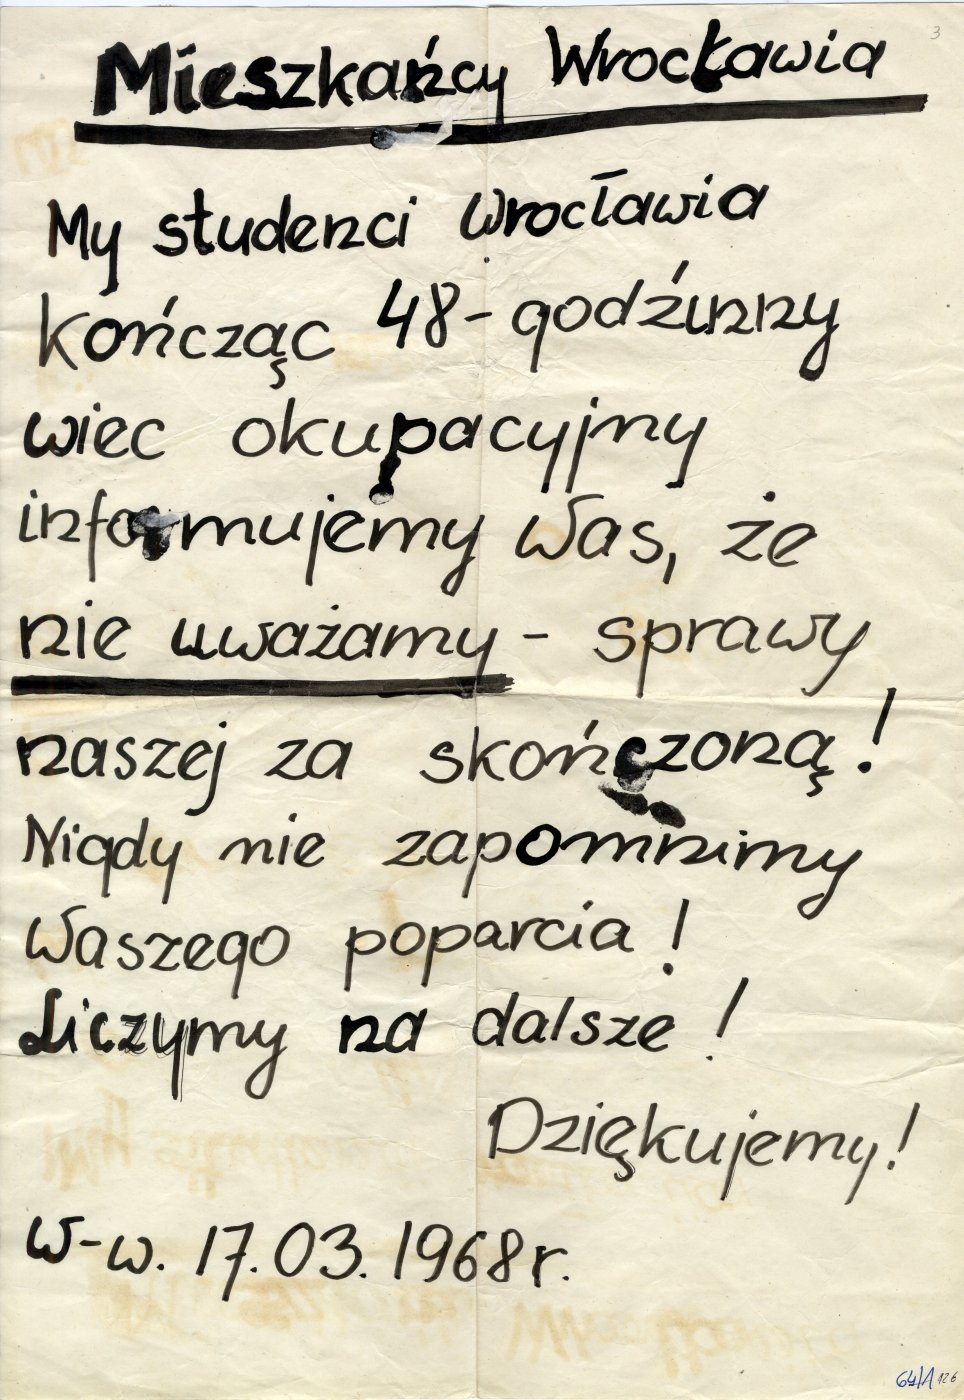 3
Mieszkańcy Wrocławia
My studenci Wrocławia
kończąc 48-godźinny
wiec okupacyjny
informujemy Was, że
nie uważamy - sprawy
naszej za skończoną!
Nigdy nie zapomnimy
Waszego poparcia!
Liczymy na dalsze!
Dziękujemy!
W-w. 17.03.1968r.
64/1 126